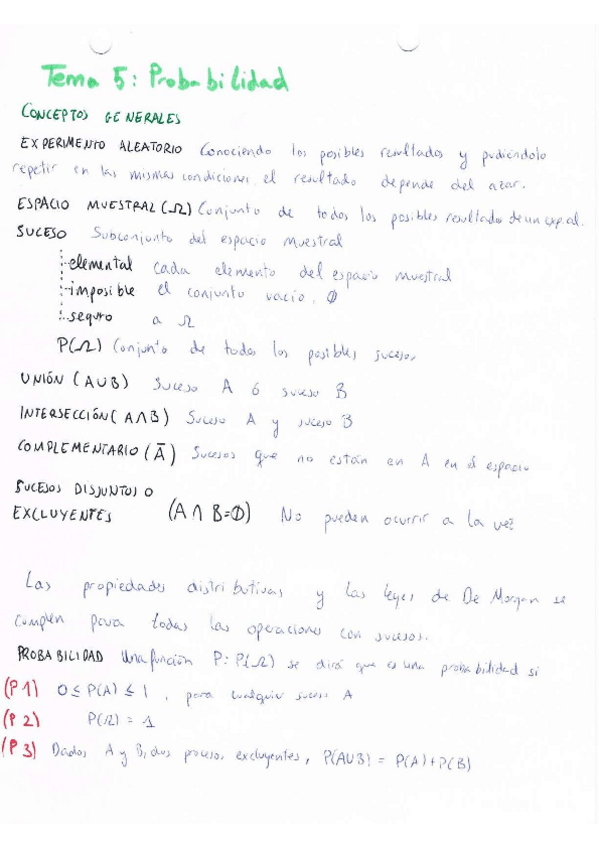 Tema 5: Probabilidad
CONCEPTOS GENERALES
EXPERIMENTO ALEATORIO Conociendo los posibles resultados y pudiéndolo
repetir en las mismas condiciones, el resultado depende del azar.
ESPACIO MUESTRAL (Ω) Conjunto de todos los posibles resultado de un exp. al.
SUCESO Subconjunto del espacio muestral
elemental cada elemento del espacio muestral
imposible el conjunto vacío, Ø
seguro a Ω
P(Ω) Conjunto de todos los posibles sucesos
UNIÓN (A∪B) Suceso A ó suceso B
INTERSECCIÓN (A∩B) Suceso A y suceso B
COMPLEMENTARIO (Ā) Sucesos que no están en A en el espacio
SUCESOS DISJUNTOS O
EXCLUYENTES (A ∩ B=Ø) No pueden ocurrir a la vez
Las propiedades distributivas y las leyes de De Morgan se
cumplen para todas las operaciones con sucesos.
PROBABILIDAD Una función P: P(Ω) se dirá que es una probabilidad si
(P1) 0 ≤ P(A) ≤ 1, para cualquier suceso A
(P2) P(Ω) = 1
(P3) Dados A y B, dos procesos excluyentes, P(A∪B) = P(A)+P(B)